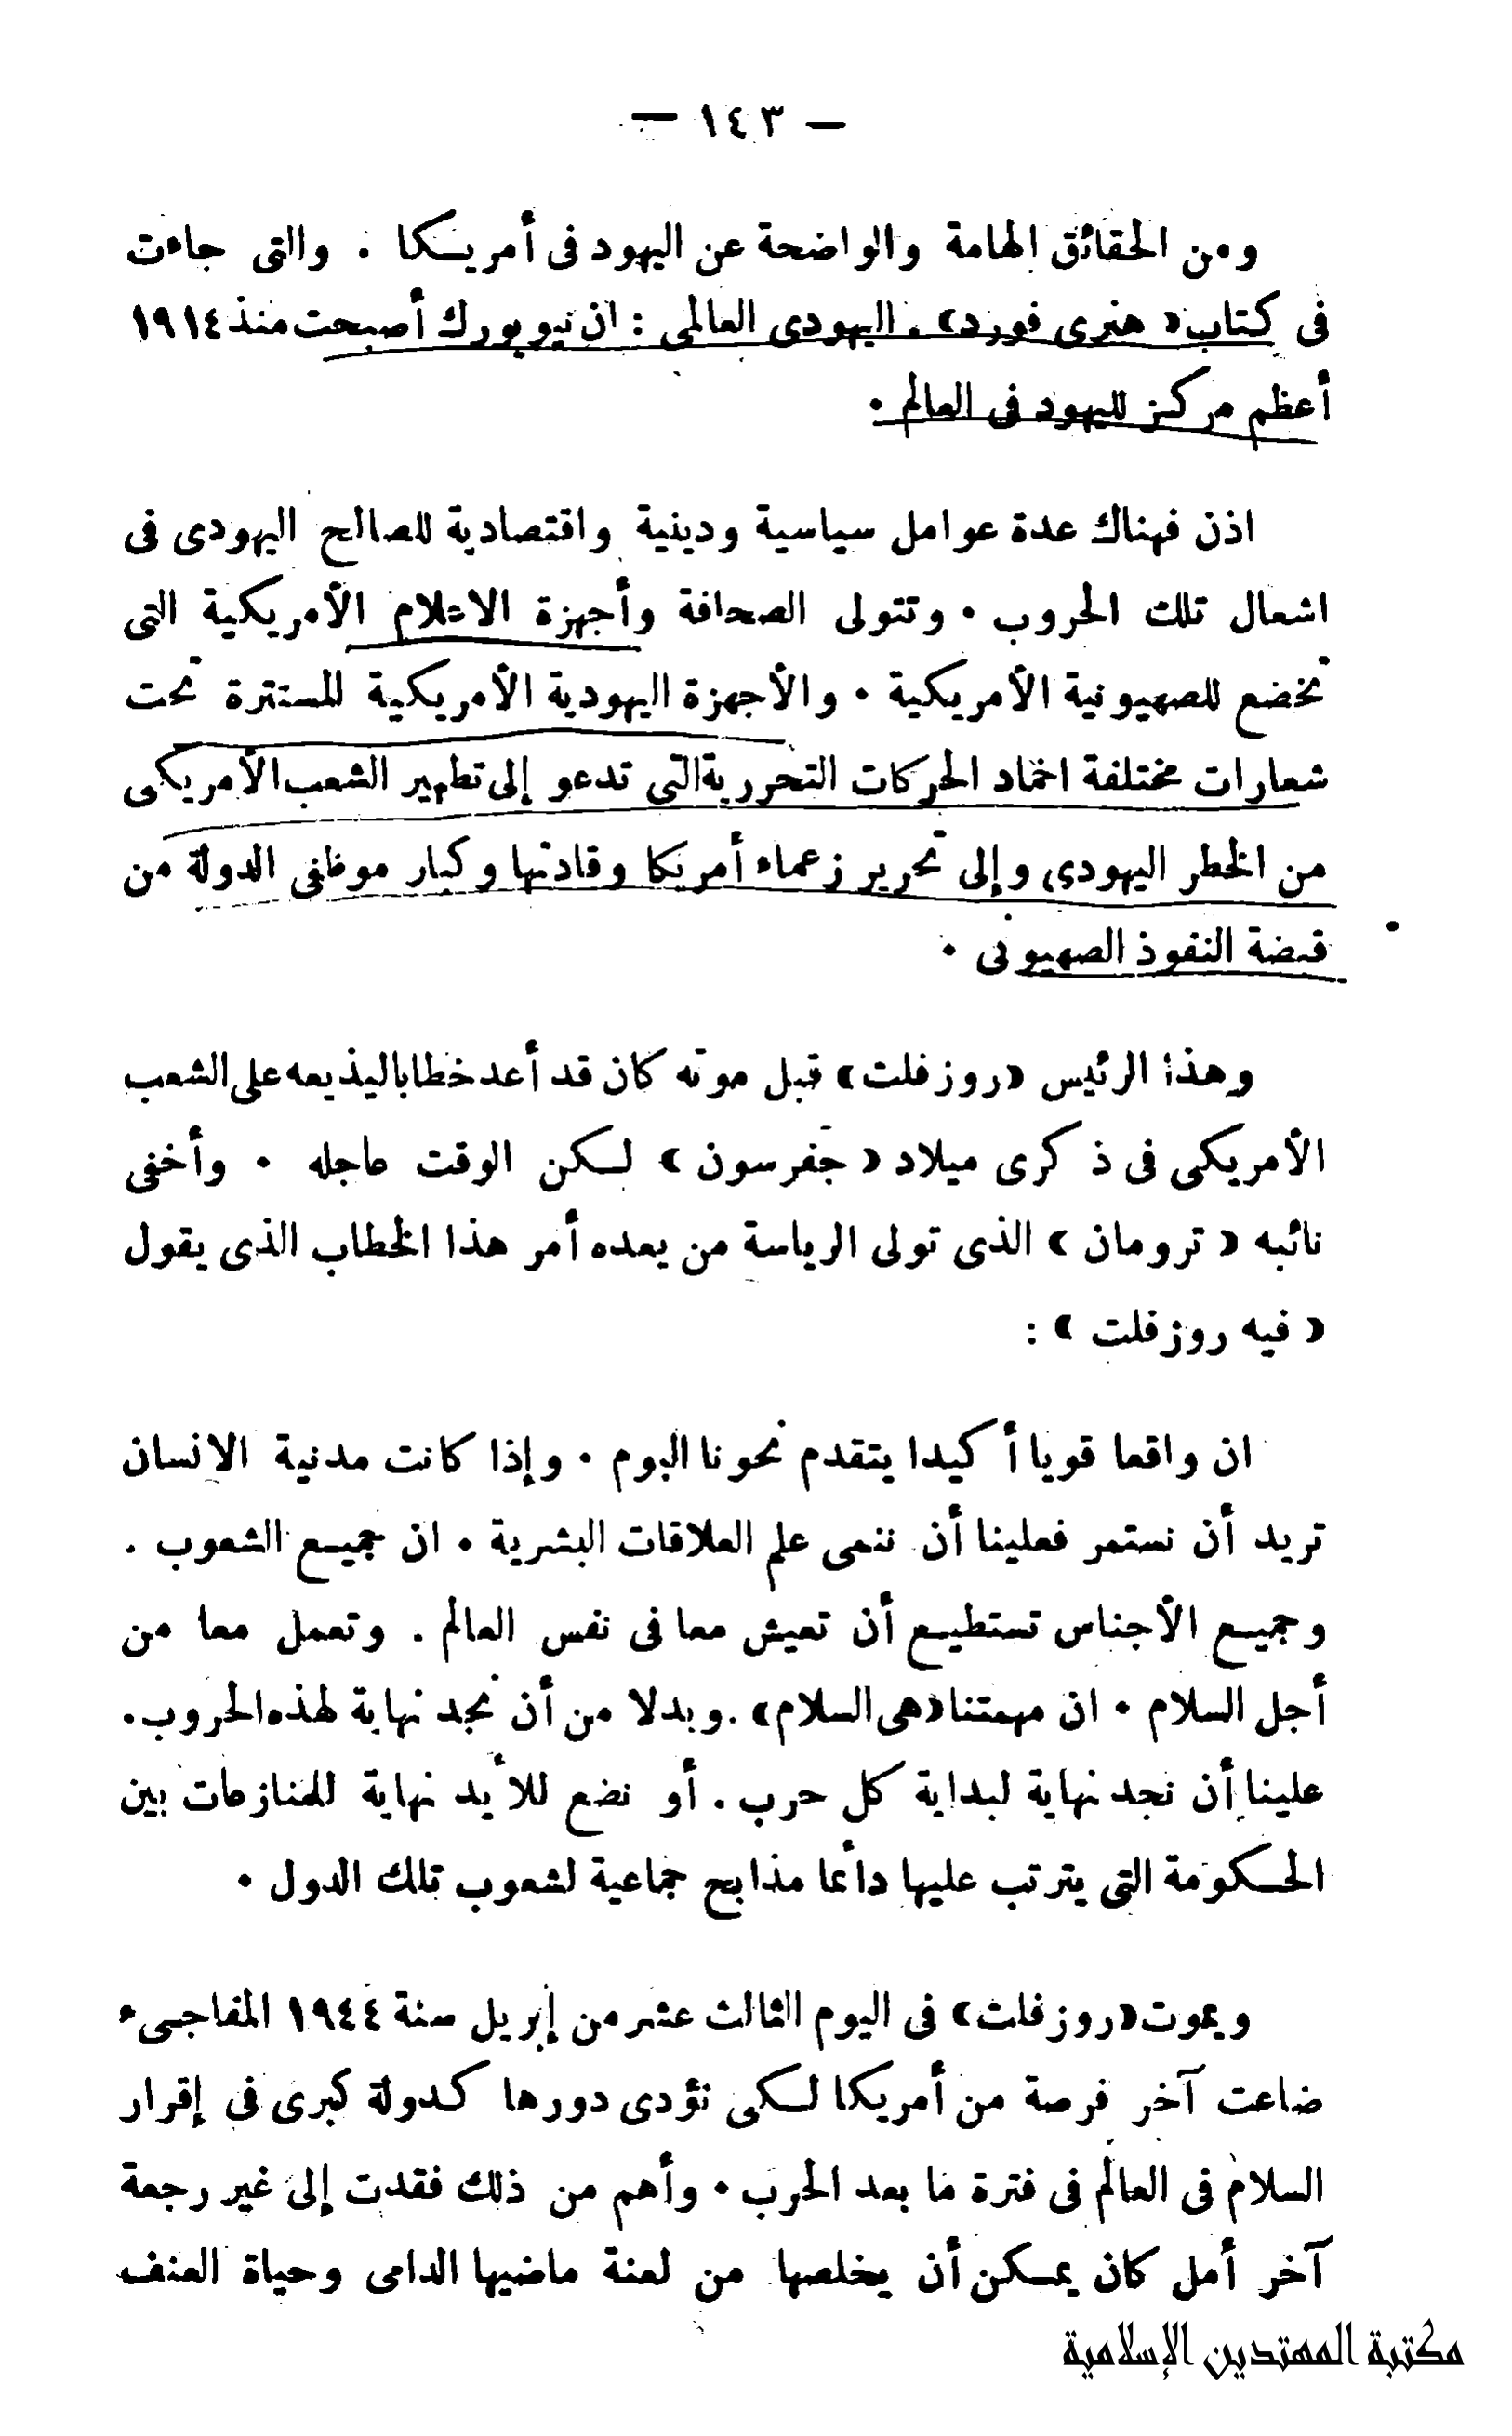 — ١٤٣ —
ومن الحقائق الهامة والواضحة عن اليهود فى أمريكا . والتى جاءت
فى كتاب « هنرى فورد » . اليهودى العالمى : ان نيويورك أصبحت منذ ١٩١٤
أعظم مركز لليهود فى العالم .
اذن فهناك عدة عوامل سياسية ودينية واقتصادية للصالح اليهودى فى
اشعال تلك الحروب . وتتولى الصحافة وأجهزة الاعلام الأمريكية التى
تخضع للصهيونية الأمريكية . والأجهزة اليهودية الأمريكية المستترة تحت
شعارات مختلفة اخماد الحركات التحررية التى تدعو إلى تطهير الشعب الأمريكى
من الخطر اليهودى وإلى تحرير زعماء أمريكا وقادتها وكبار موظفى الدولة من
قبضة النفوذ الصهيونى .
وهذا الرئيس « روزفلت » قبل موته كان قد أعد خطابا ليذيعه على الشعب
الأمريكى فى ذكرى ميلاد « جفرسون » لكن الوقت عاجله . وأخفى
نائبه « ترومان » الذى تولى الرياسة من بعده أمر هذا الخطاب الذى يقول
« فيه روزفلت » :
ان واقعا قويا أكيدا يتقدم نحونا اليوم . وإذا كانت مدنية الانسان
تريد أن نستمر فعلينا أن ننمى علم العلاقات البشرية . ان جميع الشعوب .
وجميع الأجناس تستطيع أن تعيش معا فى نفس العالم . وتعمل معا من
أجل السلام . ان مهمتنا « هى السلام » . وبدلا من أن نجد نهاية لهذه الحروب .
علينا أن نجد نهاية لبداية كل حرب . أو نضع للأبد نهاية للمنازعات بين
الحكومة التى يترتب عليها دائما مذابح جماعية لشعوب تلك الدول .
ويموت « روزفلت » فى اليوم الثالث عشر من إبريل سنة ١٩٤٤ المفاجىء
ضاعت آخر فرصة من أمريكا لكى تؤدى دورها كدولة كبرى فى إقرار
السلام فى العالم فى فترة ما بعد الحرب . وأهم من ذلك فقدت إلى غير رجعة
آخر أمل كان يمكن أن يخلصها من لعنة ماضيها الدامى وحياة العنف
مكتبة المهتدين الإسلامية